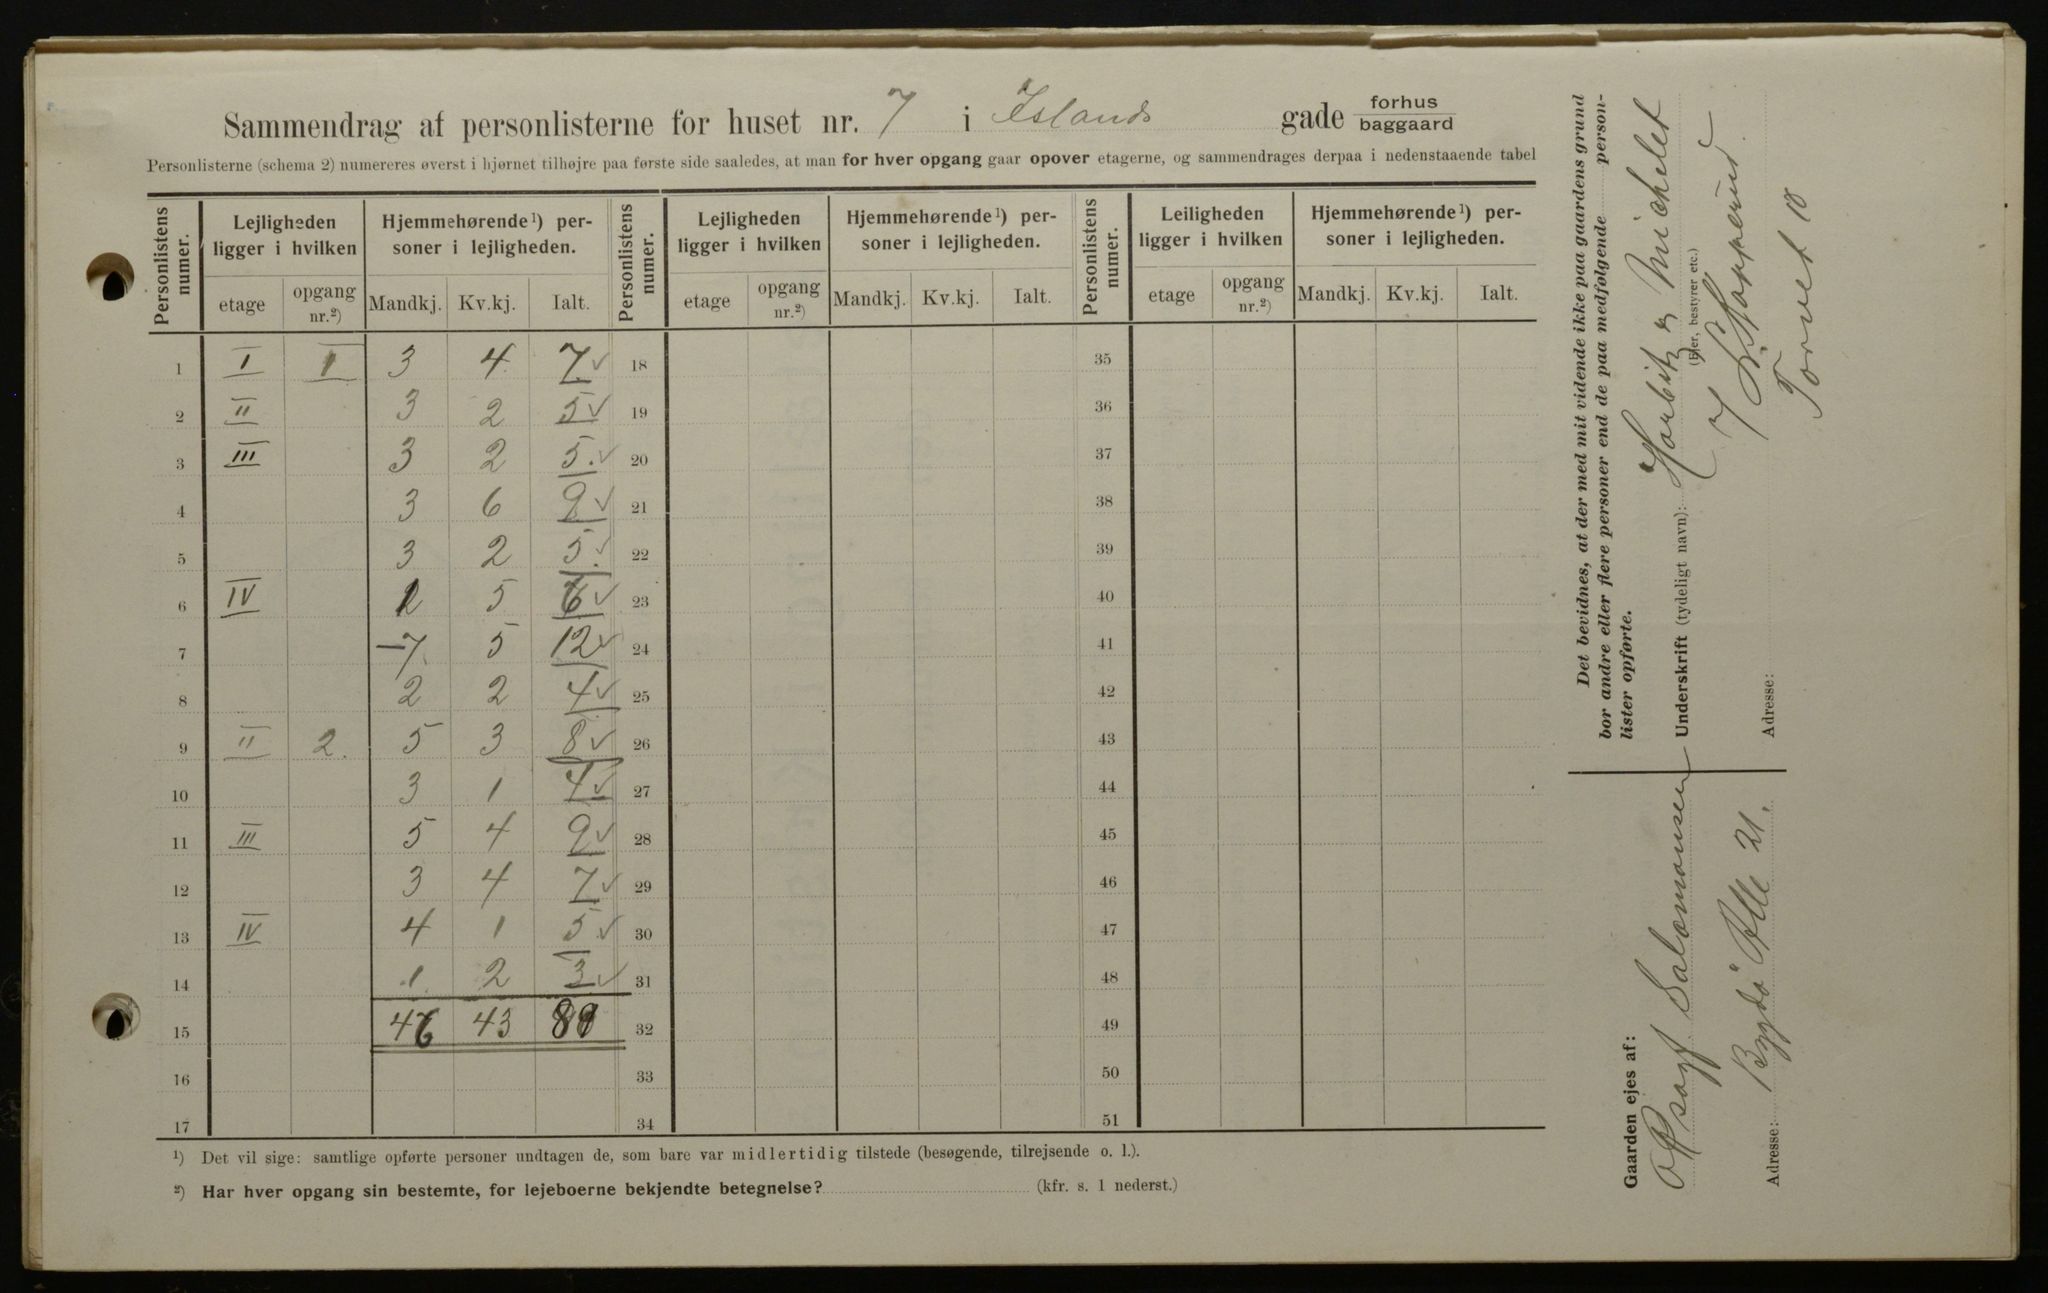 Sammendrag af personlisterne for huset nr. 7 i Islands gade forhus baggaard
Personlisterne (schema 2) numereres øverst i hjørnet tilhøjre paa første side saaledes, at man for hver opgang gaar opover etagerne, og sammendrages derpaa i nedenstaaende tabel
Personlistens numer. Lejligheden ligger i hvilken Hjemmehørende¹) personer i lejligheden. Personlistens numer. Lejligheden ligger i hvilken Hjemmehørende¹) personer i lejligheden. Personlistens numer. Leiligheden ligger i hvilken Hjemmehørende¹) personer i lejligheden.
etage opgang nr.²) Mandkj. Kv.kj. Ialt. etage opgang nr.²) Mandkj. Kv.kj. Ialt. etage opgang nr.²) Mandkj. Kv.kj. Ialt.
1 I 1 3 4 7 ✓ 18 35
2 II 3 2 5 ✓ 19 36
3 III 3 2 5. ✓ 20 37
4 3 6 9 ✓ 21 38
5 3 2 5. ✓ 22 39
6 IV 1 5 6 ✓ 23 40
7 7 5 12 ✓ 24 41
8 2 2 4 ✓ 25 42
9 II 2. 5 3 8 ✓ 26 43
10 3 1 4 ✓ 27 44
11 III 5 4 9 ✓ 28 45
12 3 4 7 ✓ 29 46
13 IV 4 1 5 ✓ 30 47
14 1 2 3 ✓ 31 48
15 46 43 89 32 49
16 33 50
17 34 51
¹) Det vil sige: samtlige opførte personer undtagen de, som bare var midlertidig tilstede (besøgende, tilrejsende o. l.).
²) Har hver opgang sin bestemte, for lejeboerne bekjendte betegnelse? (kfr. s. 1 nederst.)
Det bevidnes, at der med mit vidende ikke paa gaardens grund
bor andre eller flere personer end de paa medfølgende person-
lister opførte.
Underskrift (tydeligt navn): Harbitz & Michelet
(Ejer, bestyrer etc.)
Adresse: Torvet 10
Gaarden ejes af:
Salomonsen
Adresse: Bygdø Alle 21.